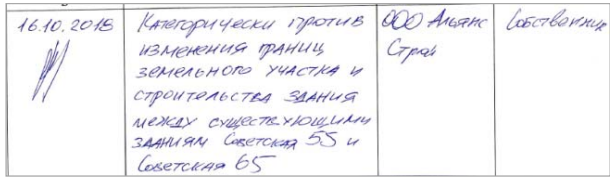 16.10.2018
Категорически против
изменения границ
земельного участка и
строительства здания
между существующими
зданиям Советская 55 и
Советская 65
ООО Альянс
Строй
Собственник